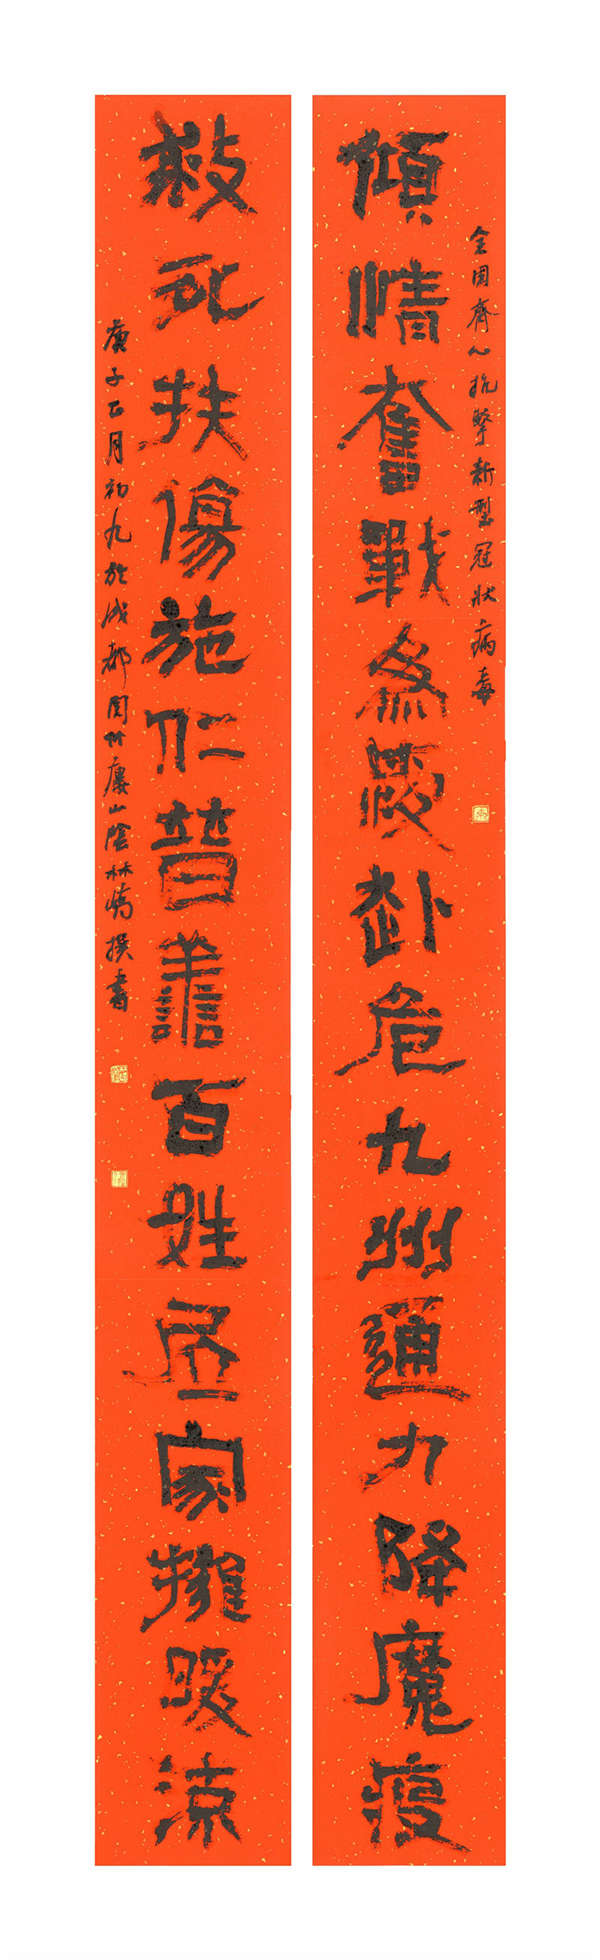 全國齊心抗擊新型冠狀病毒
傾情奮戰爲赴危九州通力降魔疫
救死扶傷施仁普譱百姓居家擁暖涼
庚子正月初九於成都閑竹廔山陰林撰書